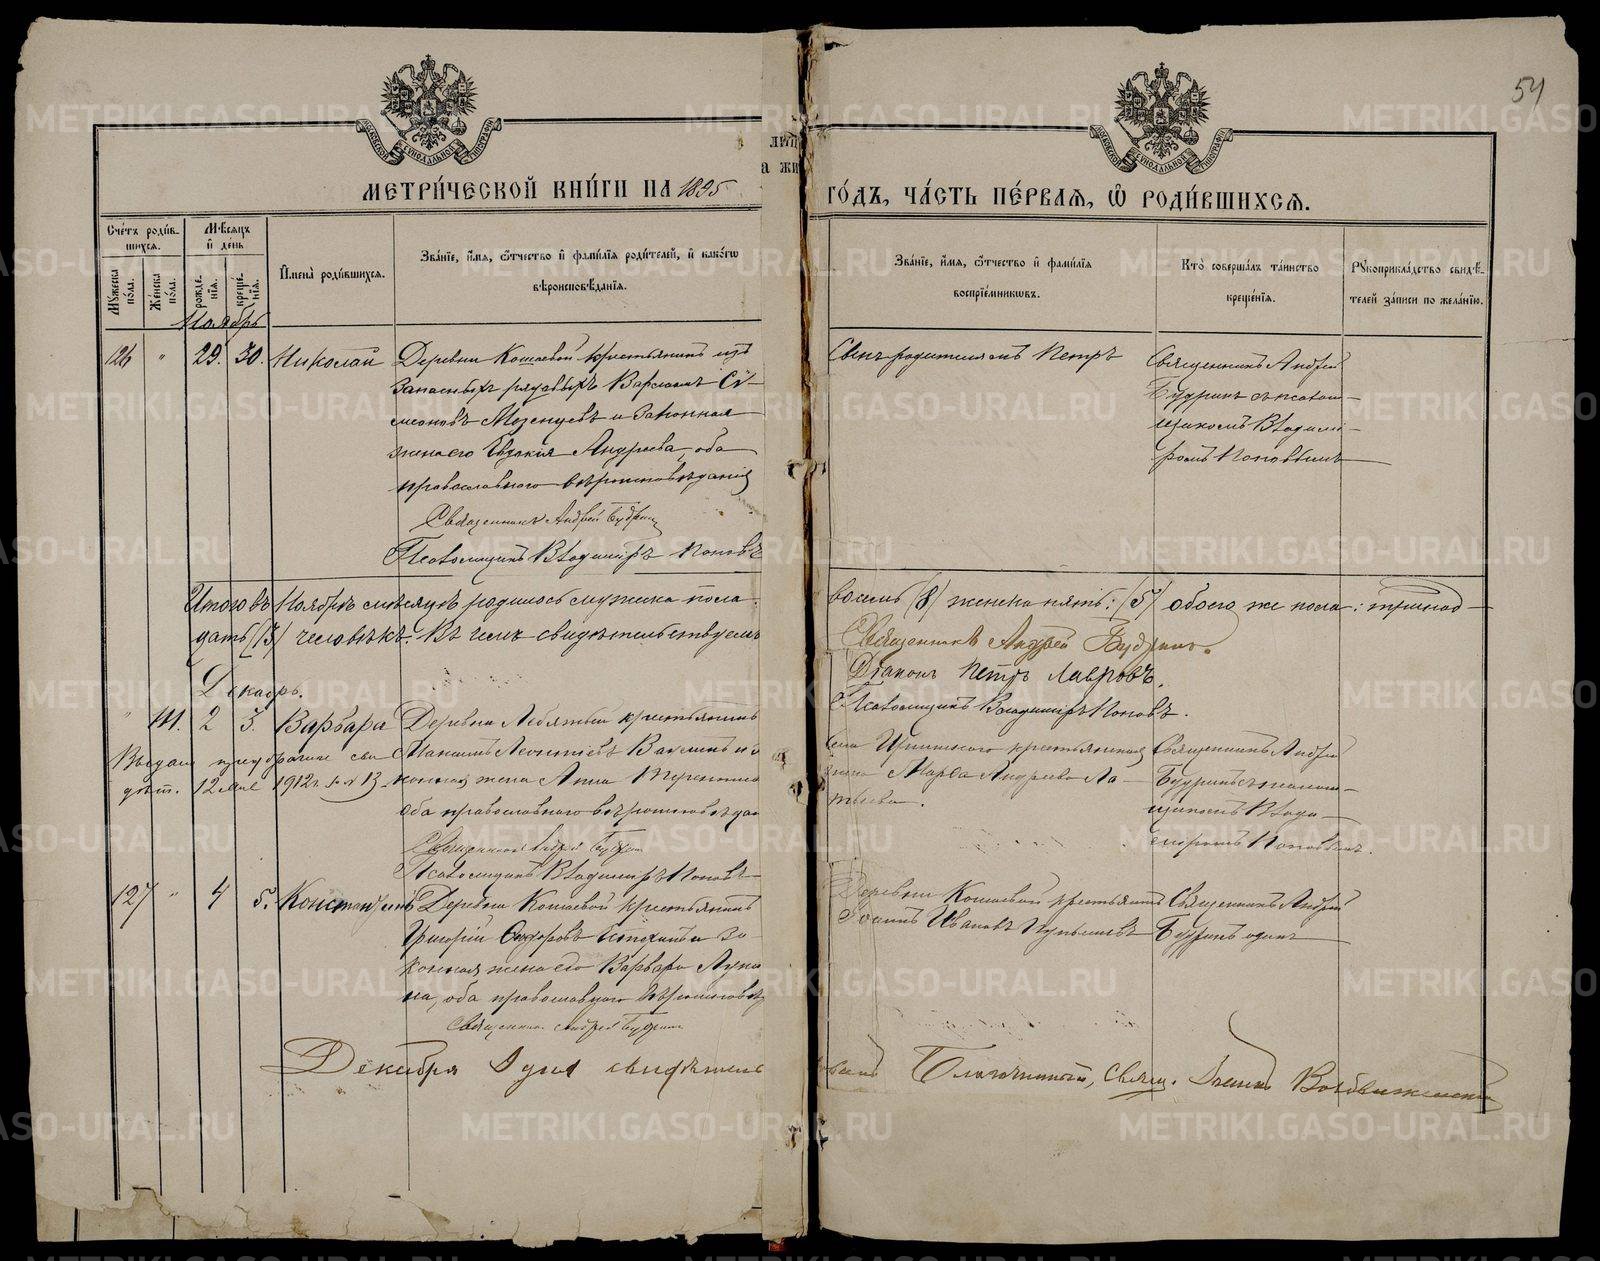 54
МЕТРИ́ЧЕСКОЙ КНИ́ГИ НА 1895
ГО́ДЪ, ЧА́СТЬ ПЕ́РВАЯ, Ѡ РОДИ́ВШИХСЯ.
Сче́тъ роди́в-
шихся.
Мѣсяцъ
и де́нь
Мꙋжеска по́ла.
Же́нска по́ла.
рожде́-
нія.
креще́-
нія.
Имена̀ роди́вшихся.
Зва́ніе, и́мя, ѻ́тчество и фами́лія роди́телей, и како́гѡ
вѣроисповѣ́данія.
Зва́ніе, и́мя, ѻ́тчество и фами́лія
воспріе́мникѡвъ.
Кто̀ соверша́лъ та́инство
креще́нія.
Рꙋкоприкла́дство свидѣ́-
телей за́писи по жела́нію.
Ноябрь
126 " 29. 30. Николай
Деревни Кошаевой крестьянинъ изъ
запасныхъ рядовыхъ Варлаамъ Си-
меоновъ Мозенцевъ и законная
жена его Евдокія Андреева, оба
православнаго вѣроисповѣданія
Священникъ Андрей Будринъ
Псаломщикъ Владиміръ Поповъ
Сынъ родителямъ Петръ
Священникъ Андрей
Будринъ съ псалом-
щикомъ Владимі-
ромъ Поповымъ
Итого въ Ноябрѣ мѣсяцѣ родилось мужеска пола
восемь (8) женска пять: (5) обоего же пола: тринад-
цать (13) человѣкъ. Въ чемъ свидѣтельствуемъ
Священникъ Андрей Будринъ.
Діаконъ Петръ Лавровъ.
Псаломщикъ Владиміръ Поповъ.
Декабрь.
" 111. 2 3. Варвара
12 мая 1912 г. № 13
Деревни Лебяжьей крестьянинъ
Максимъ Леонтіевъ
жена Анна
оба православнаго вѣроисповѣдан
Священникъ Андрей Будринъ
Псаломщикъ Владиміръ Поповъ
крестьянская
Марѳа Андреева Ла-
Священникъ Андрей
Будринъ съ псалом-
щикомъ Влади-
міромъ Поповымъ.
127 " 4 5. Константинъ
Деревни Кошаевой крестьянинъ
Григорій и за-
конная жена его Варвара
на, оба православнаго вѣроисповѣд
Священникъ Андрей Будринъ
Деревни Кошаевой крестьянинъ
Іоаннъ Ивановъ
Священникъ Андрей
Будринъ одинъ
Декабря 9 дня свидѣтель
ствовалъ Благочинный, Свящ. Воздвиженскій
METRIKI.GASO-URAL.RU